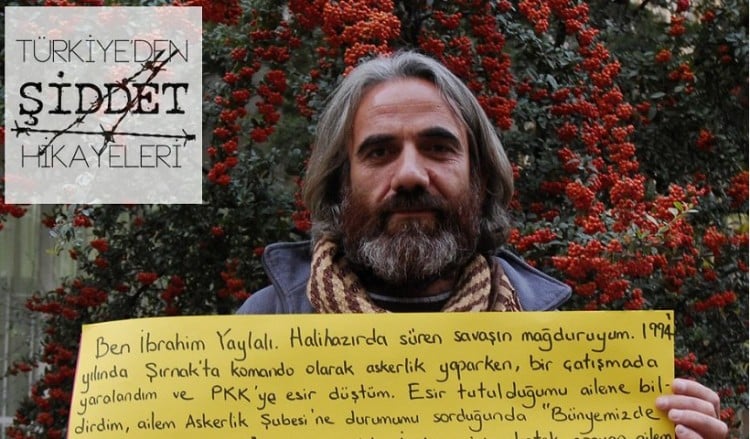 TÜRKİYE'DEN
ŞİDDET
HİKAYELERİ
Ben İbrahim Yaylalı. Halihazırda süren savaşın mağduruyum. 1994
yılında Şırnak'ta komando olarak askerlik yaparken, bir çatışmada
yaralandım ve PKK'ya esir düştüm. Esir tutulduğumu aileme bil-
dirdim, ailem Askerlik Şubesi'ne durumumu sorduğunda "Bünyemizde